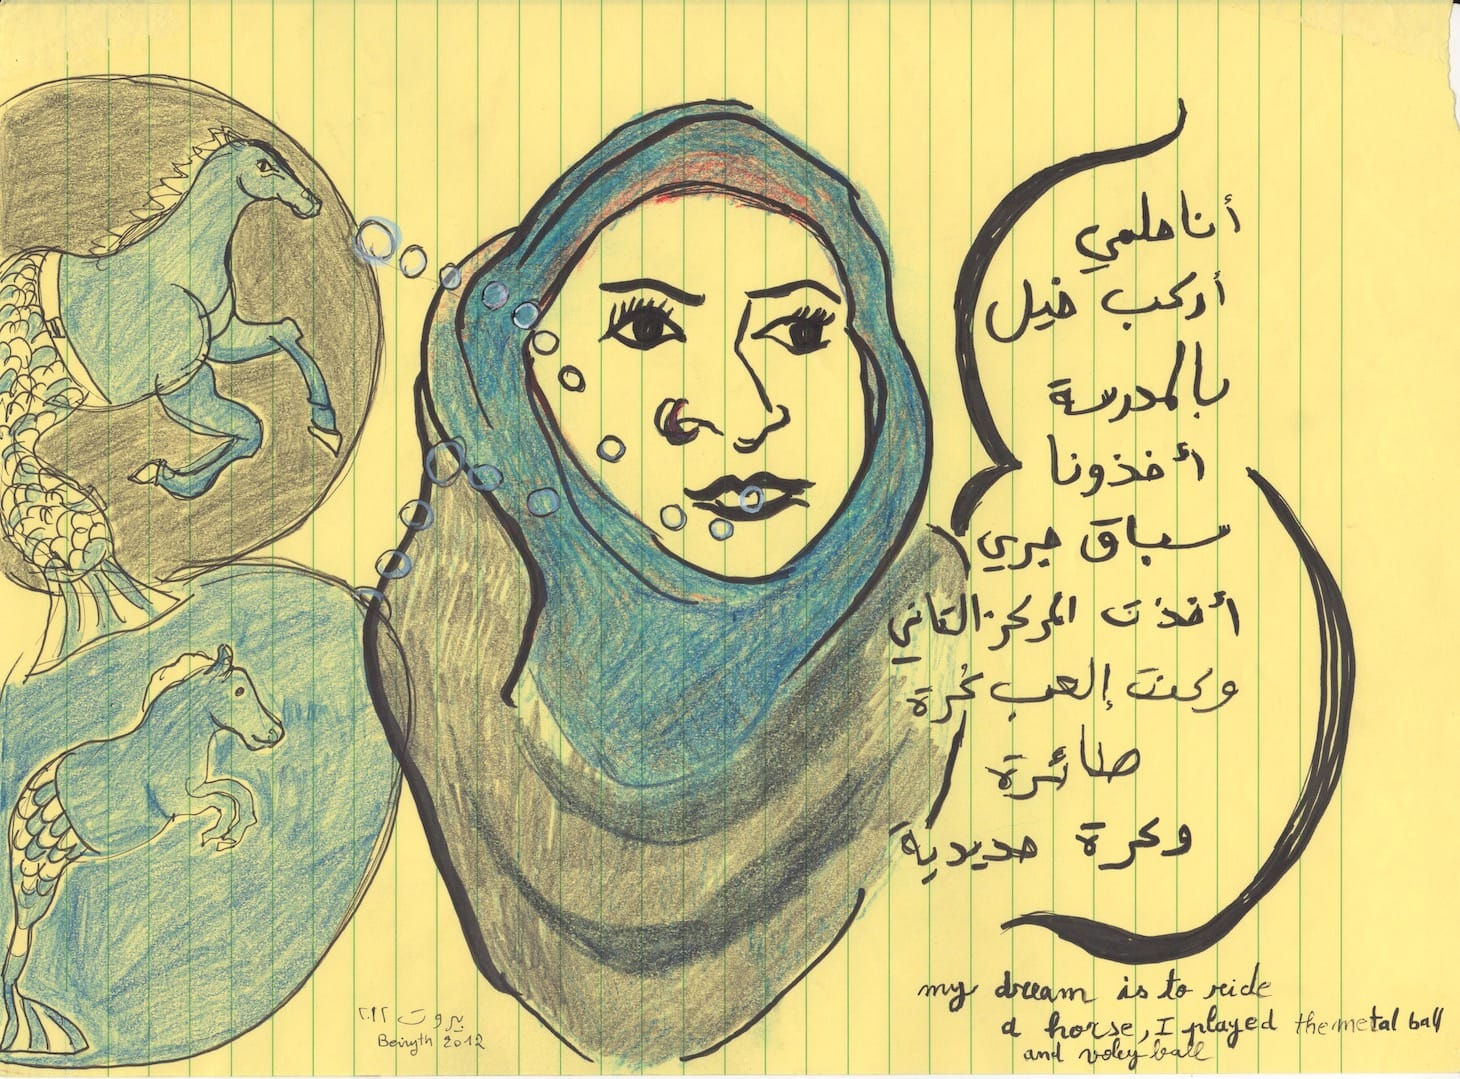 أنا حلمي
أركب خيل
بالمدرسة
أخذونا
سباق جري
أخذت المركز التاني
وكنت إلعب كُرة
طائرة
وكرة حديدية
my dream is to ride
a horse, I played the metal ball
and voley ball
بيروت ٢٠١٢
Beiryth 2012